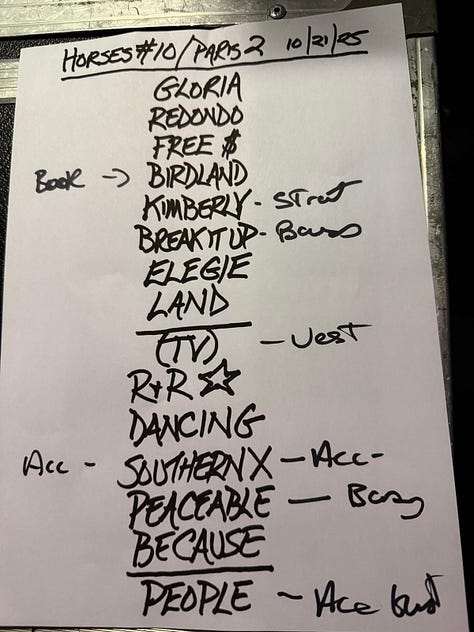 HORSES #10/PARIS 2 10/21/25
GLORIA
REDONDO
FREE $
Book → BIRDLAND
KIMBERLY - Strat
BREAK IT UP - Bass
ELEGIE
LAND
(TV) - Vest
R+R ☆
DANCING
Acc - SOUTHERN X - Acc -
PEACEABLE - Bass
BECAUSE
PEOPLE - Acc